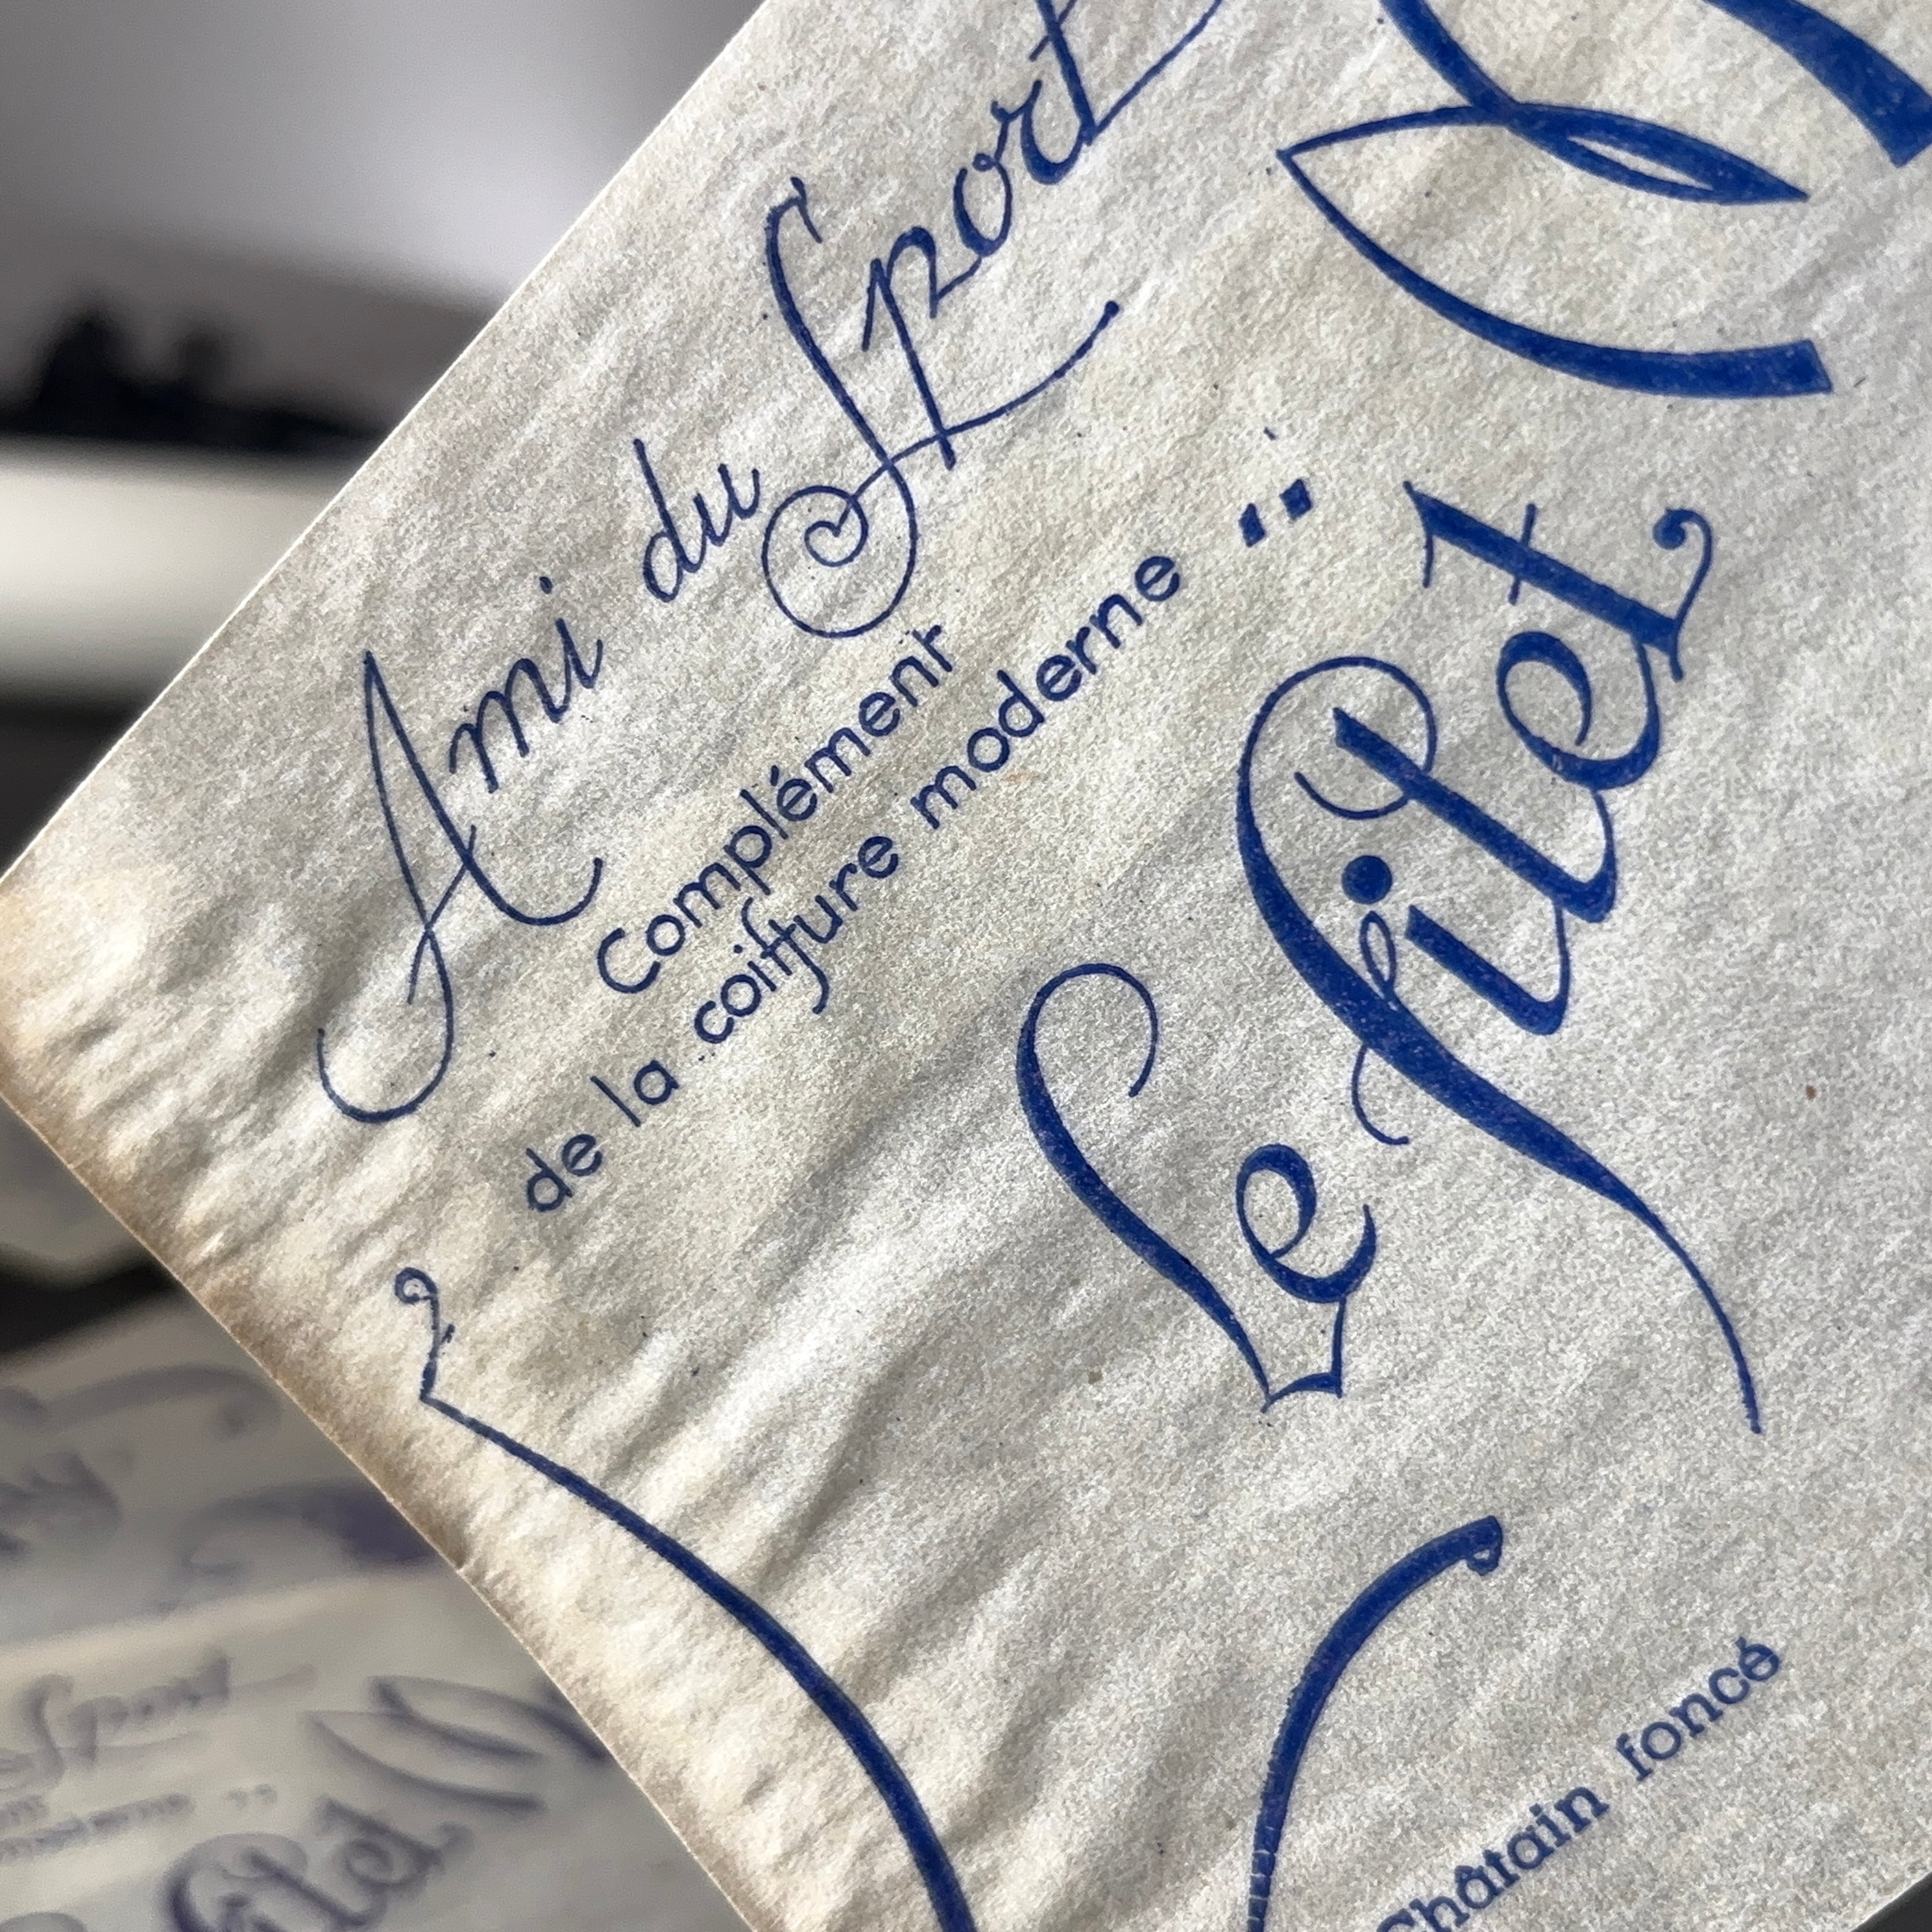 Ami du Sport
Complément
de la coiffure moderne "
Le filet
Châtain foncé